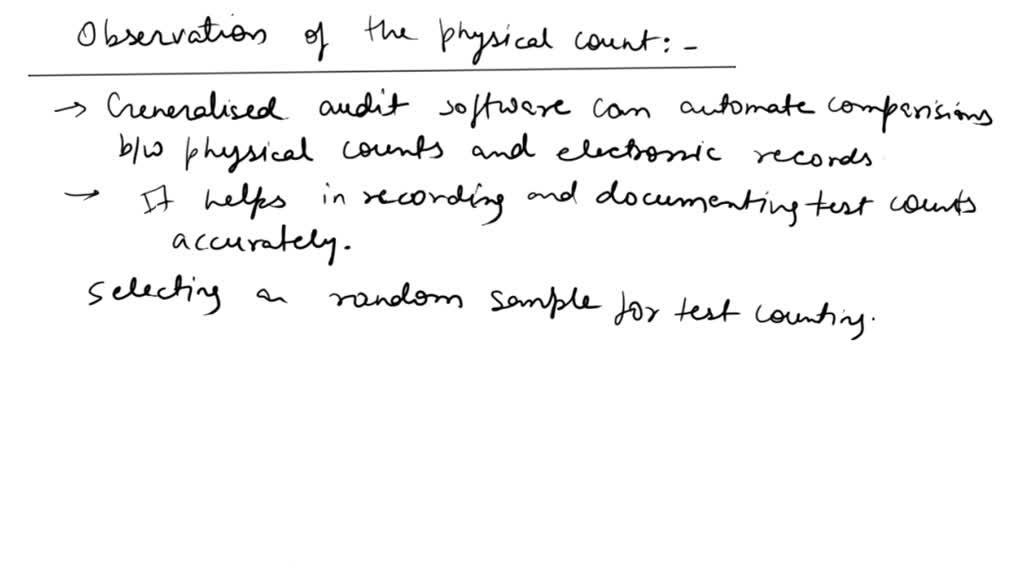 Observation of the physical count:-
→ Generalised audit software can automate comparisions
b/w physical counts and electronic records
→ It helps in recording and documenting test counts
accurately.
Selecting a random sample for test counting.